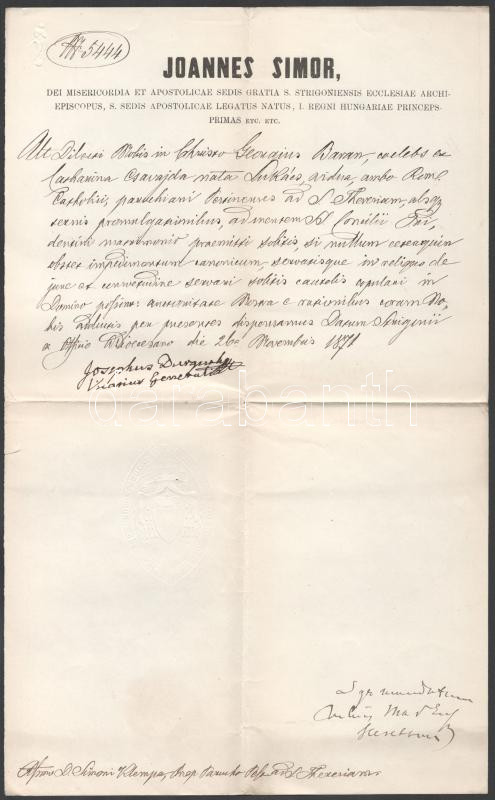 No 5444
JOANNES SIMOR,
DEI MISERICORDIA ET APOSTOLICAE SEDIS GRATIA S. STRIGONIENSIS ECCLESIAE ARCHI-
EPISCOPUS, S. SEDIS APOSTOLICAE LEGATUS NATUS, I. REGNI HUNGARIAE PRINCEPS-
PRIMAS ETC. ETC.
Ut Dilecti Nobis in Christo Georgius Baran, coelebs et
Catharina Csavajda nata Lukács, vidua, ambo Rom.
Catholici, parochiani Pestinenses ad S. Theresiam, absq
ternis promulgationibus, ad mentem S. Concilii Tri-
dentini matrimonio praemitti solitis, si nullum ceteroquin
obstet impedimentum canonicum, servatisque in reliquo de
jure et consvetudine servari solitis cautelis copulari in
Domino possint: auctoritate Nostra e rationibus coram No-
bis adductis per praesentes dispensamus Datum Strigonii
ex Officio Dioecesano die 26e Novembris 1871
Josephus
Vicarius Generalis
darabanth
Simoni Klempa, Parocho ad S. Theresiam